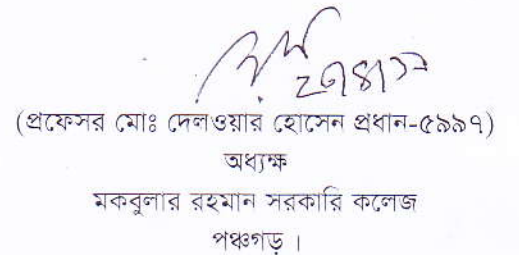 (প্রফেসর মোঃ দেলওয়ার হোসেন প্রধান-৫৯৯৭)
অধ্যক্ষ
মকবুলার রহমান সরকারি কলেজ
পঞ্চগড় ।